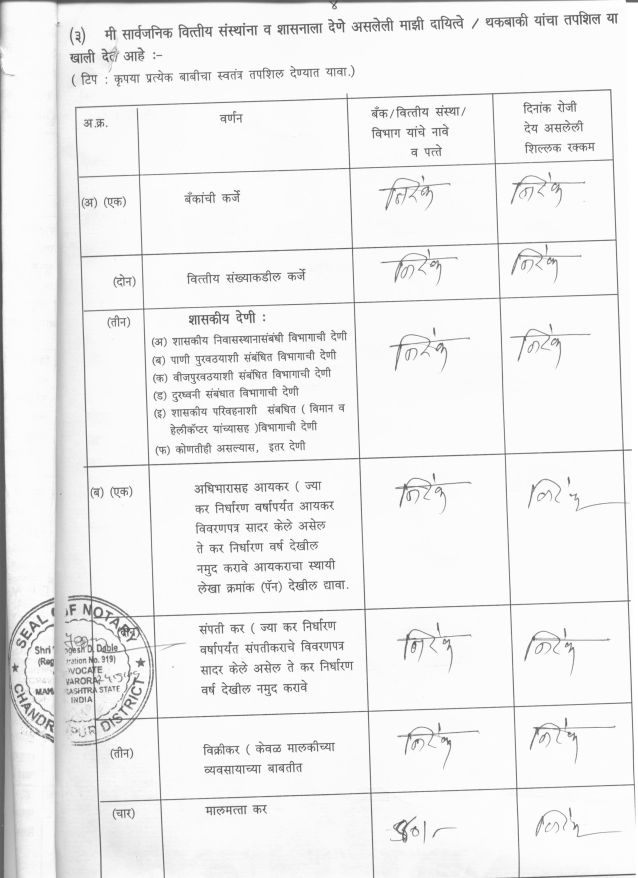 ४
(३) मी सार्वजनिक वित्तीय संस्थांना व शासनाला देणे असलेली माझी दायित्वे / थकबाकी यांचा तपशिल या
खाली देत आहे :-
( टिप : कृपया प्रत्येक बाबीचा स्वतंत्र तपशिल देण्यात यावा.)
अ.क्र. वर्णन बँक/वित्तीय संस्था/ विभाग यांचे नावे व पत्ते दिनांक रोजी देय असलेली शिल्लक रक्कम
(अ) (एक) बँकांची कर्जे निरंक निरंक
(दोन) वित्तीय संख्याकडील कर्जे निरंक निरंक
(तीन) शासकीय देणी : निरंक निरंक
(अ) शासकीय निवासस्थानासंबंधी विभागाची देणी
(ब) पाणी पुरवठयाशी संबंधित विभागाची देणी
(क) वीजपुरवठयाशी संबंधित विभागाची देणी
(ड) दुरध्वनी संबंधात विभागाची देणी
(इ) शासकीय परिवहनाशी संबधित ( विमान व
हेलीकॅप्टर यांच्यासह )विभागाची देणी
(फ) कोणतीही असल्यास, इतर देणी
(ब) (एक) अधिभारासह आयकर ( ज्या निरंक निरंक
कर निर्धारण वर्षापर्यत आयकर
विवरणपत्र सादर केले असेल
ते कर निर्धारण वर्ष देखील
नमुद करावे आयकराचा स्थायी
लेखा क्रमांक (पॅन) देखील द्यावा.
संपती कर ( ज्या कर निर्धारण निरंक निरंक
वर्षापर्यंत संपतीकराचे विवरणपत्र
सादर केले असेल ते कर निर्धारण
वर्ष देखील नमुद करावे
(तीन) विक्रीकर ( केवळ मालकीच्या निरंक निरंक
व्यवसायाच्या बाबतीत
(चार) मालमत्ता कर निरंक
SEAL OF NOTARY
Shri D. Doble
(Reg ration No. 919)
VOCATE
WARORA
MAHARASHTRA STATE
INDIA
CHANDRAPUR DISTRICT